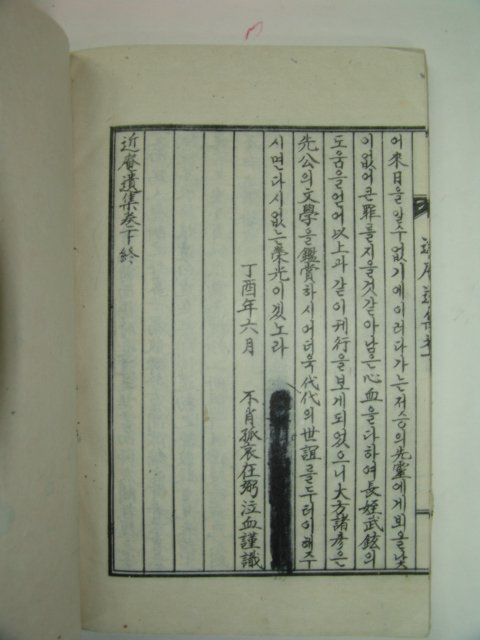 어 來日을 알수없기에 이러다가는 저승의 先靈에게 뵈올낯
이 없어 큰 罪를 지을것같아 남은 心血을 다하여 長姪武鉉의
도움을 얻어 以上과 같이 刊行을 보게되었으니 大方諸彦은
先公의 文學을 鑑賞하시어 더욱 代代의 世誼를 두터이해주
시면 다시없는 榮光이겠노라
丁酉年六月 不肖孤哀在弼泣血謹識
近庵遺集卷下終